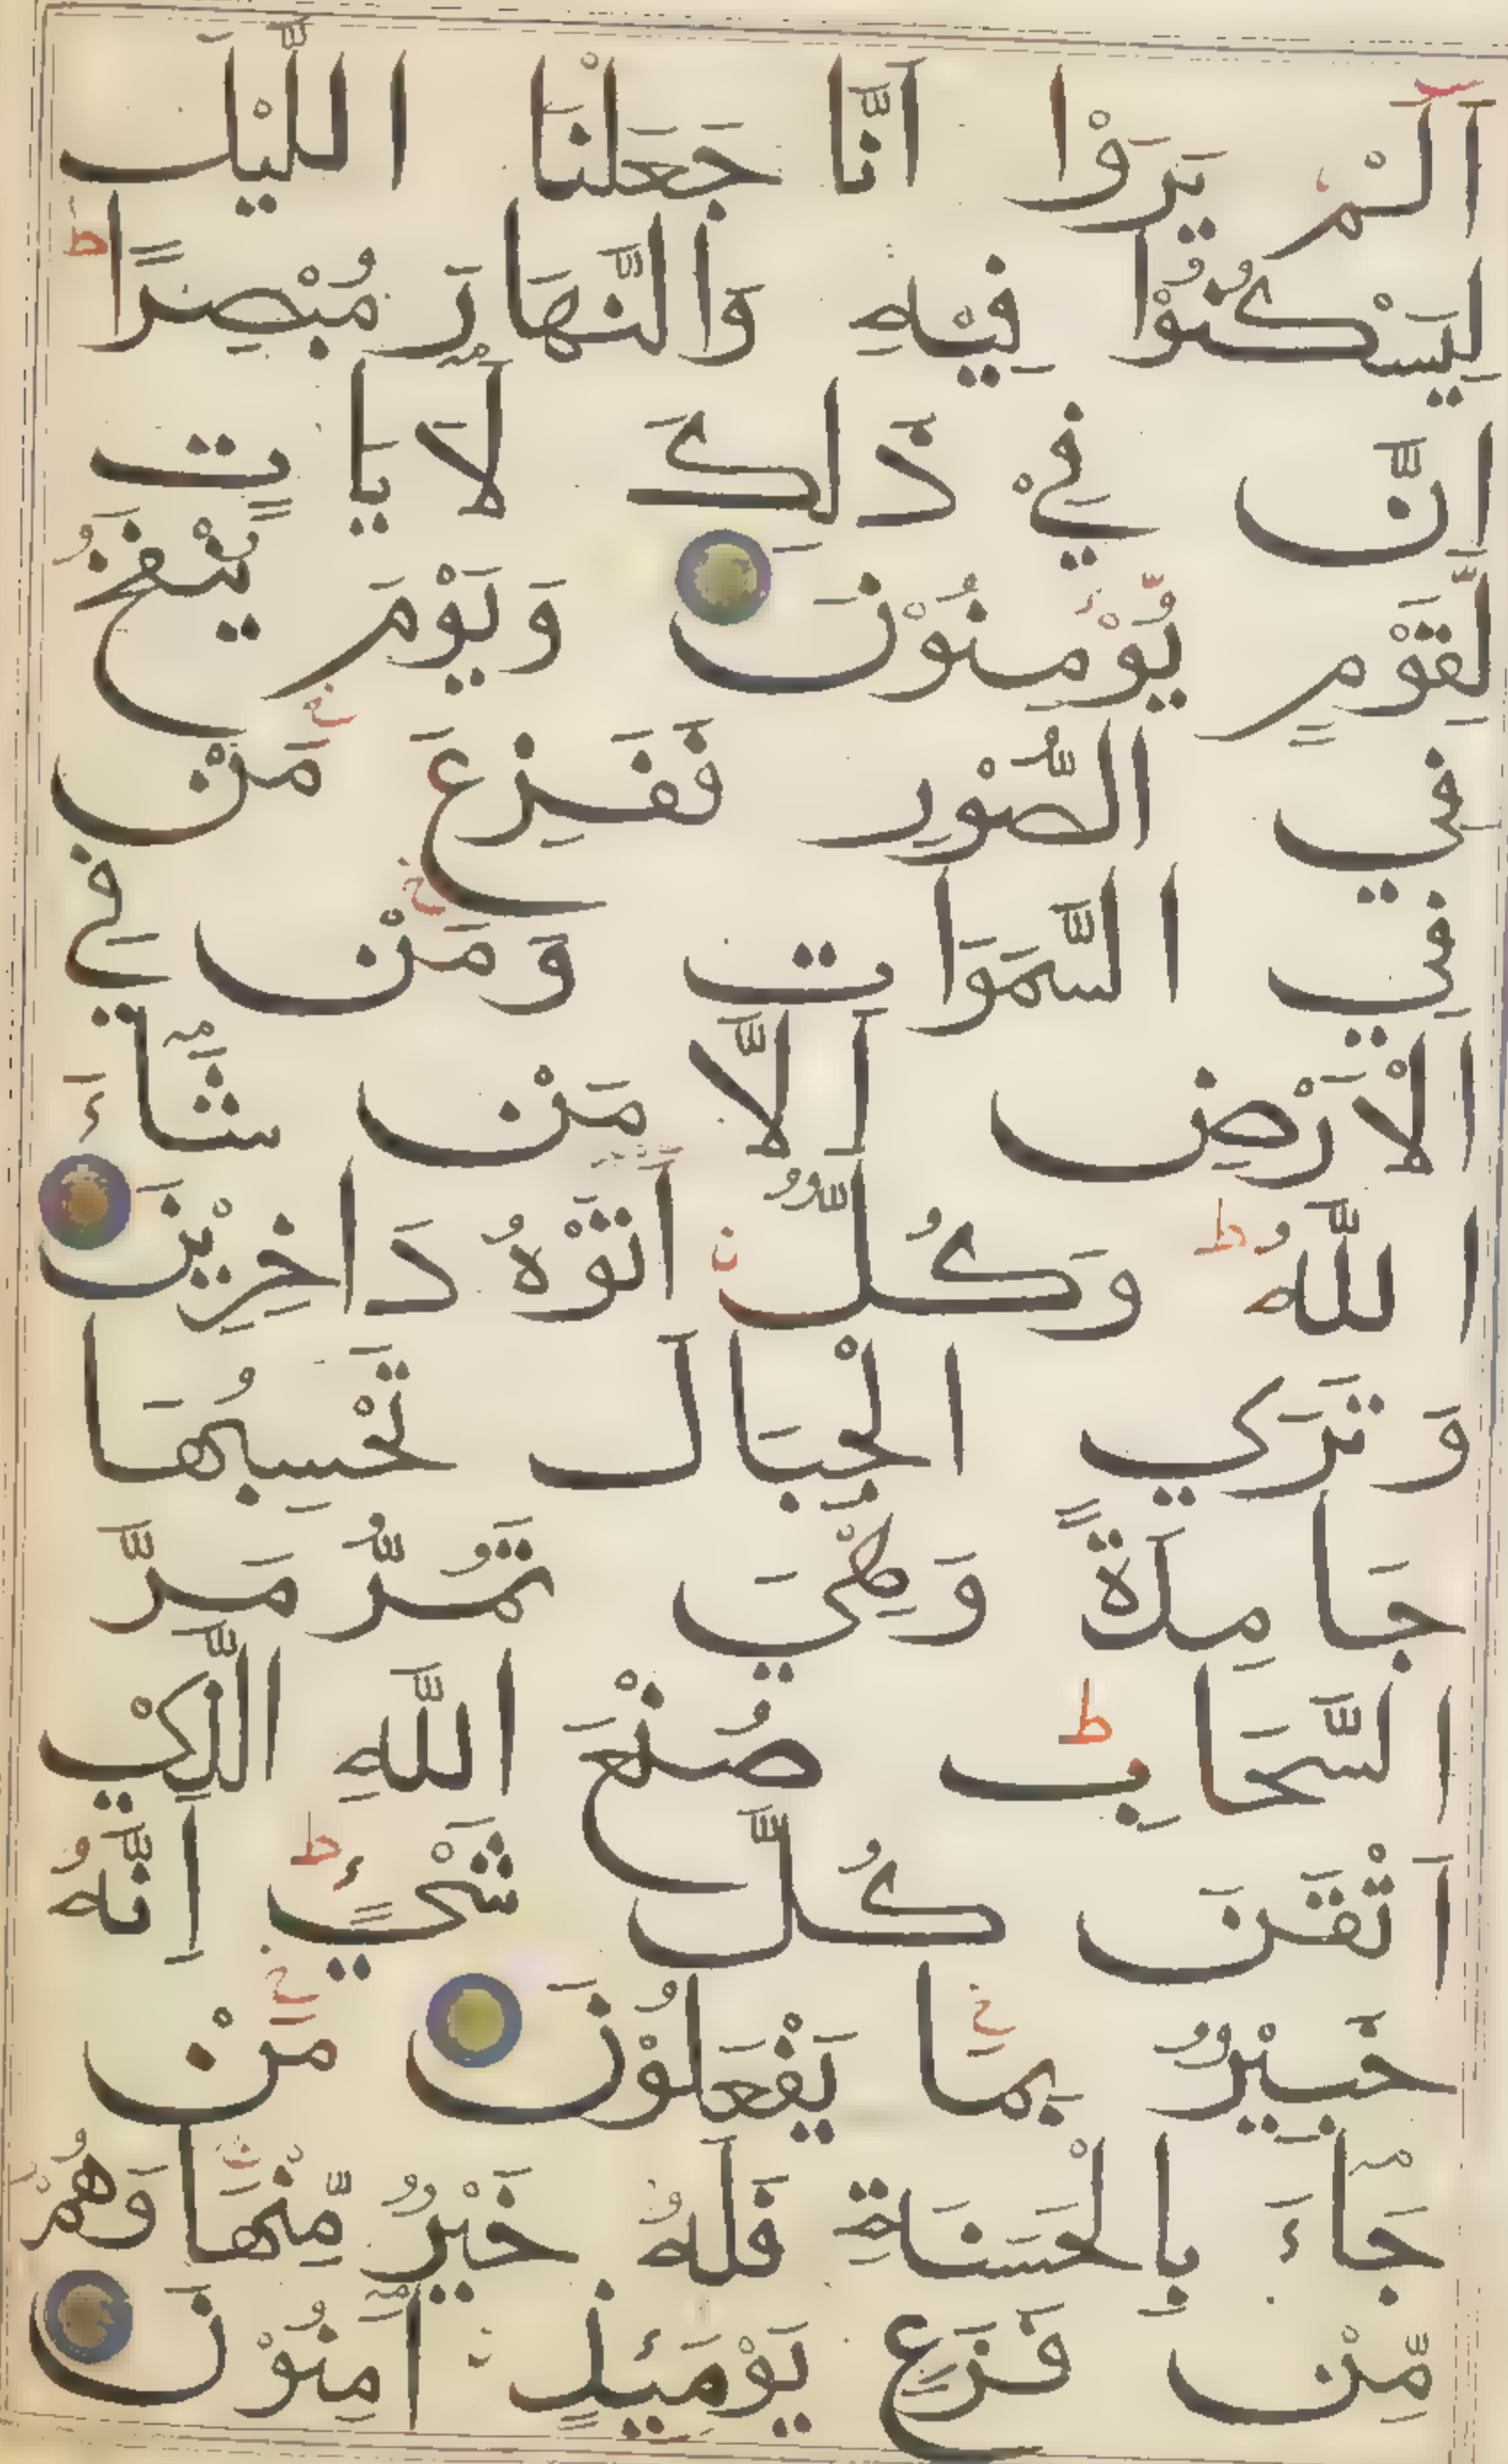 اَلَمْ يَرَوْا اَنَّا جَعَلْنَا اللَّيْلَ
لِيَسْكُنُوْا فِيْهِ وَالنَّهَارَ مُبْصِرًا ط
اِنَّ فِيْ ذَلِكَ لَاٰيَاتٍ
لِّقَوْمٍ يُّؤْمِنُوْنَ وَيَوْمَ يُنْفَخُ
فِي الصُّوْرِ فَفَزِعَ مَنْ
فِي السَّمَوَاتِ وَمَنْ فِي
الْاَرْضِ اِلَّا مَنْ شَآءَ
اللهُ ط وَكُلٌّ اَتَوْهُ دَاخِرِيْنَ
وَتَرَي الْجِبَالَ تَحْسِبُهَا
جَامِدَةً وَهِيَ تَمُرُّ مَرَّ
السَّحَابِ ط صُنْعَ اللهِ الَّذِيْ
اَتْقَنَ كُلَّ شَيْءٍ ط اِنَّهُ
خَبِيْرٌ بِمَا يَفْعَلُوْنَ مَنْ
جَآءَ بِالْحَسَنَةِ فَلَهُ خَيْرٌ مِّنْهَا وَهُمْ
مِّنْ فَزَعٍ يَوْمَئِذٍ اٰمِنُوْنَ